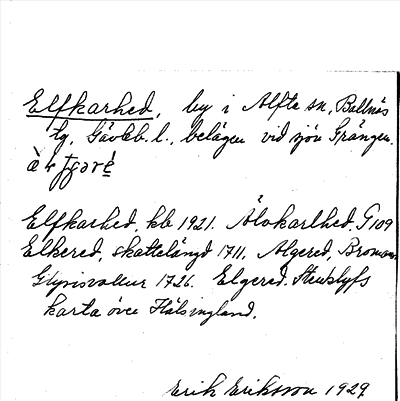 Elfkarhed, by i Alfta sn, Bollnäs
tg, Gävleb. l., belägen vid sjön Grängen.
Elfkarhed, kb 1921. Älvkarlhed. G 109
Elkered, skattelängd 1711, Algered, Broman
Glysisvallur 1726. Elgered. Stenklyfs
karta över Hälsingland.
Erik Eriksson 1929